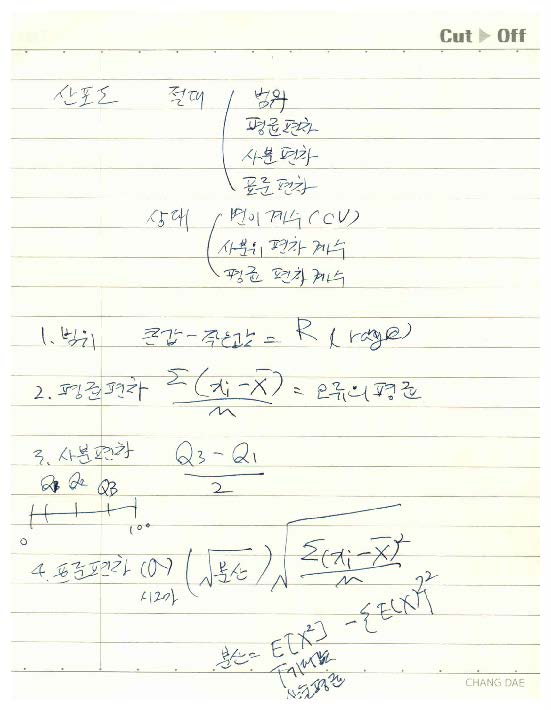 Cut ▶ Off
산포도 절대 ( 범위
평균편차
사분편차
표준편차
상대 ( 변이계수 (CV)
사분위 편차 계수
평균 편차 계수
1. 범위 큰값 - 작은값 = R (range)
2. 평균편차 Σ(xi - x̄) / n = 오류의 평균
3. 사분편차 Q3 - Q1 / 2
Q1 Q2 Q3
0 100
4. 표준편차 (σ) (√분산) √Σ(xi - x̄)² / n
시그마
분산 = E[X²] - {E(X)}²
CHANG DAE